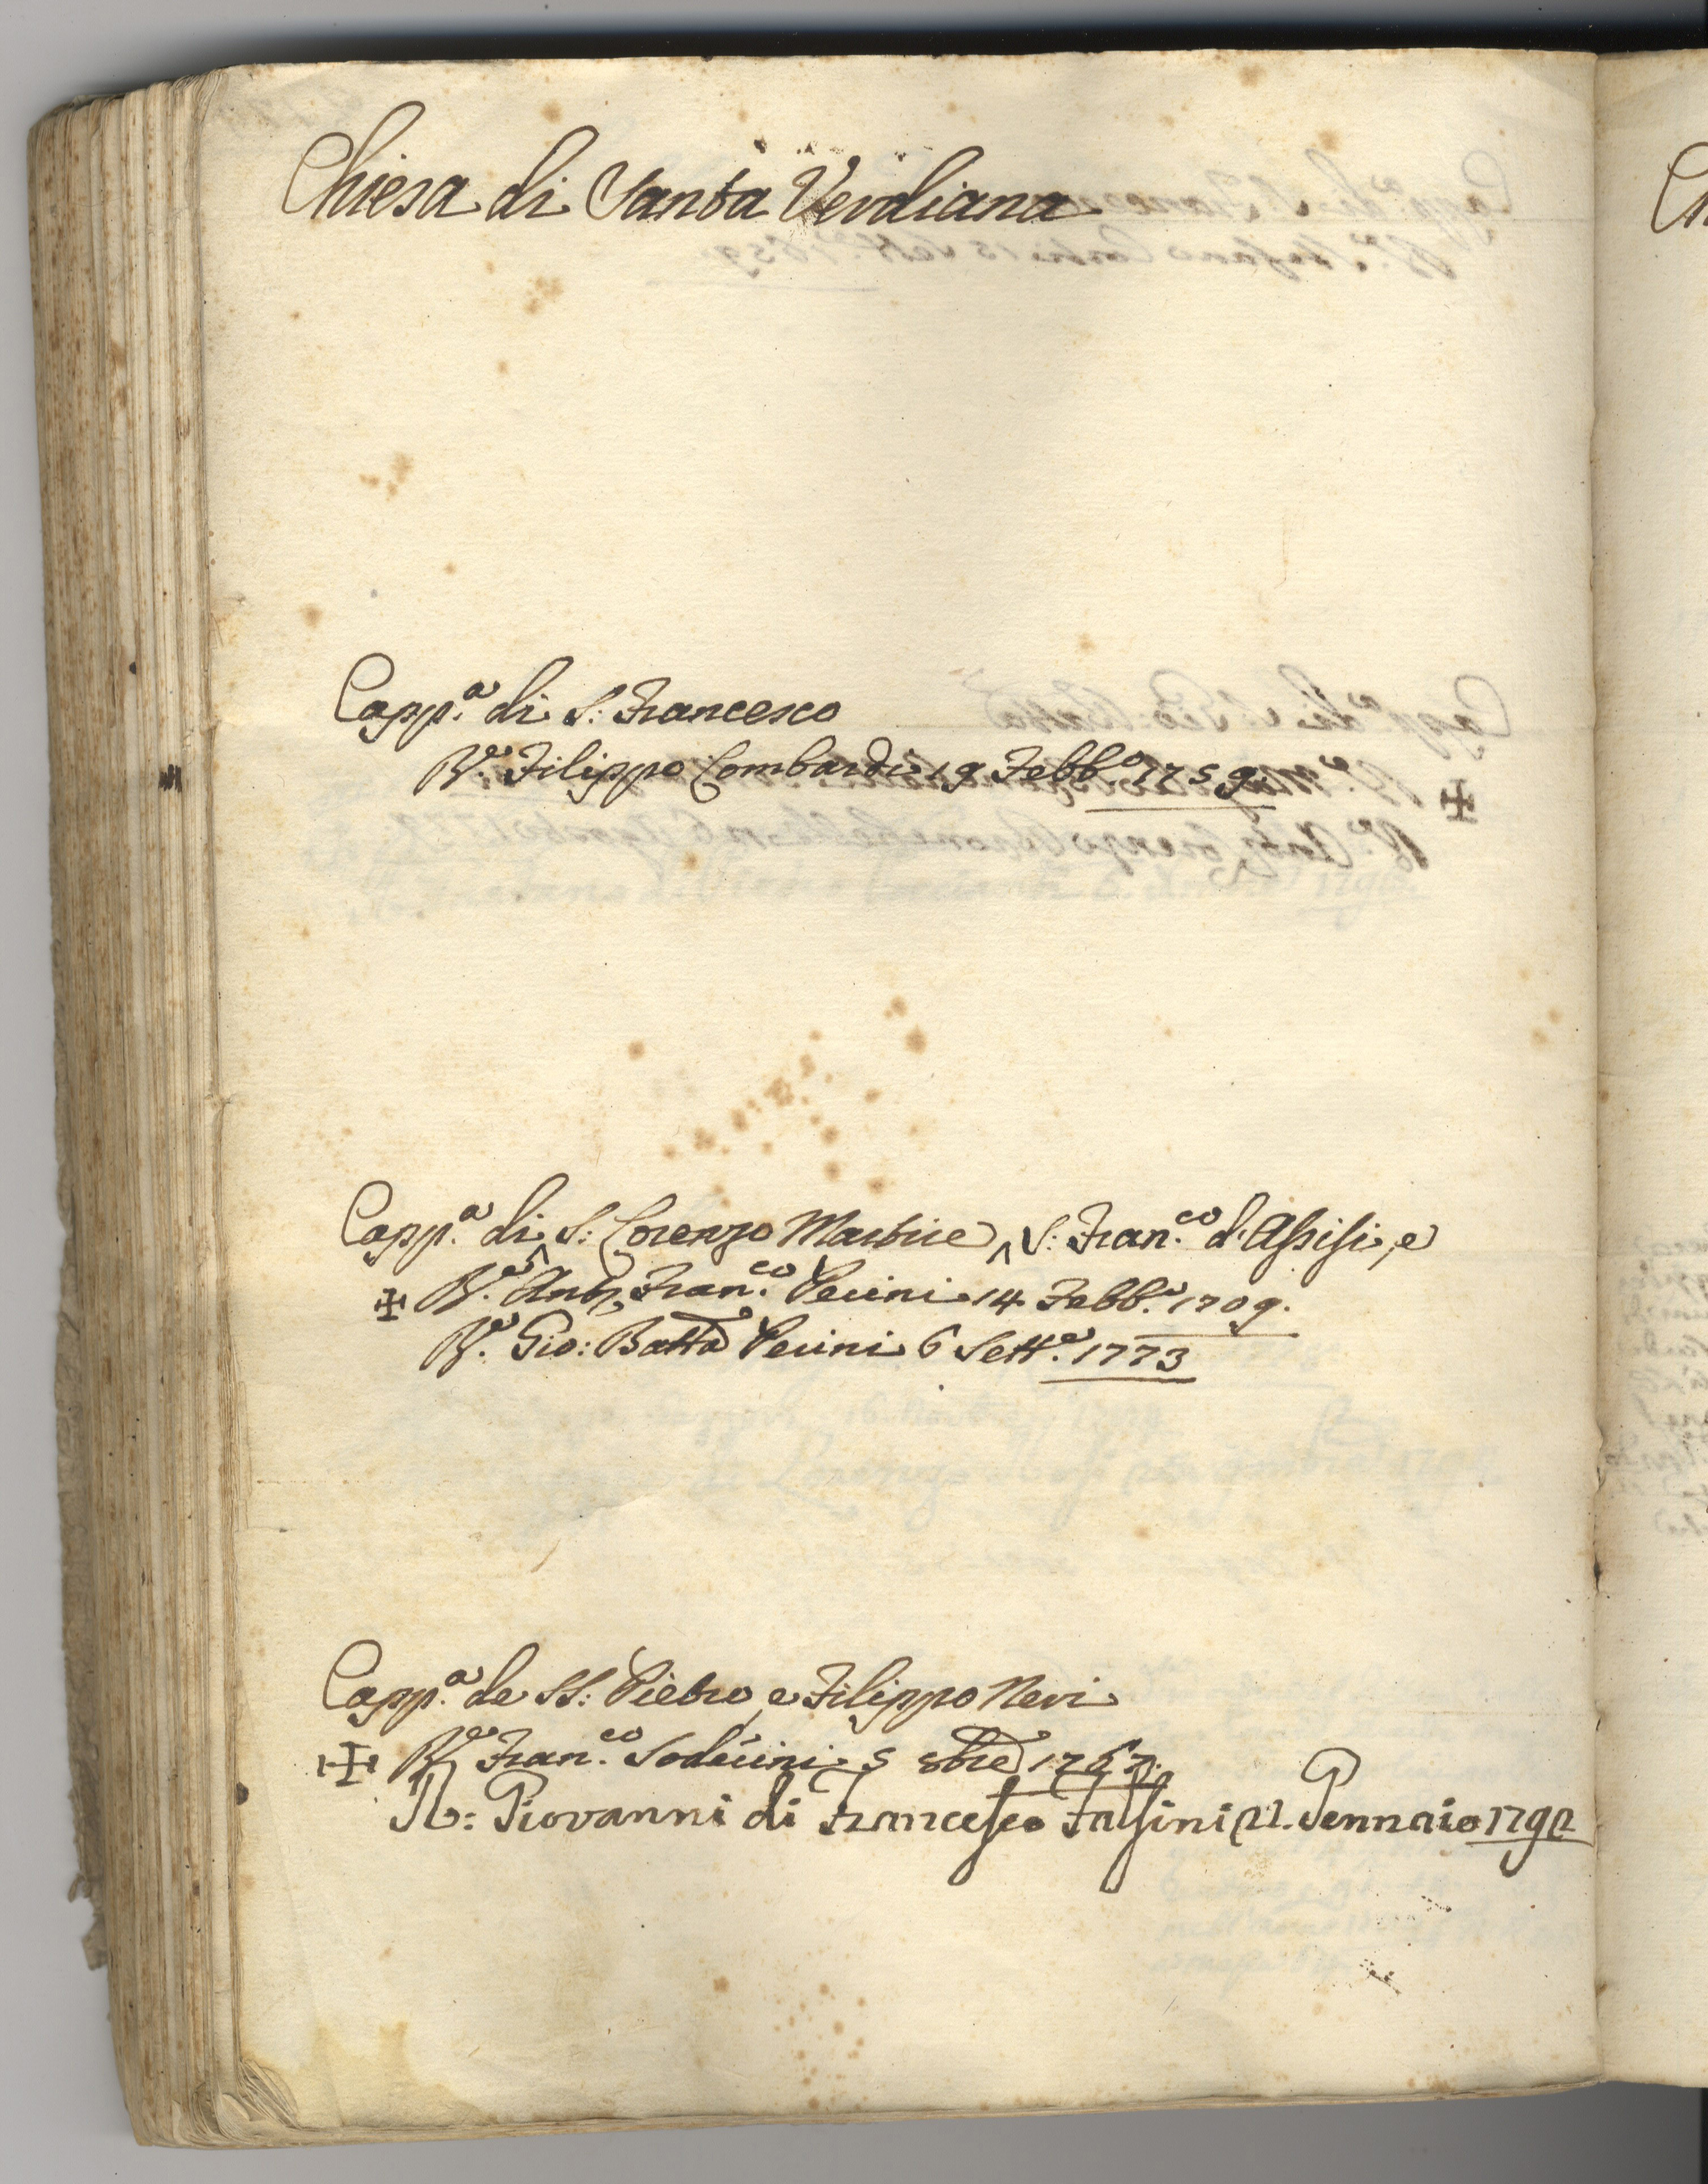 Chiesa di Santa Verdiana
Capp.ª di S: Francesco
R.e Filippo Lombardi 19 Febb.º 1759.
Capp.ª di S: Lorenzo Martire, S: Fran.co d'Assisi, e
✠ R.e Ant.º Fran.co Perini 14 Febb.º 1709.
R.e Gio: Batta Perini 6 Sett.e 1773
Capp.ª de SS: Pietro, e Filippo Neri
✠ R.e Fran.co Soderini 5 8bre 1767.
R: Giovanni di Francesco Fassini 21. Gennaio 1792